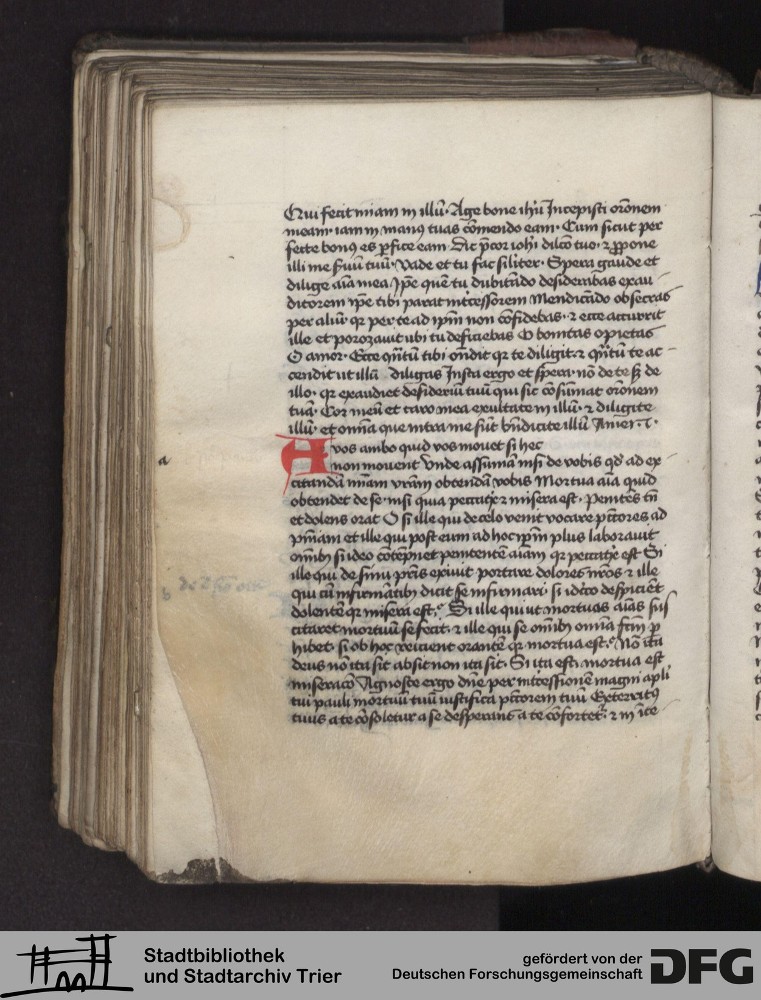 Qui fecit miam in illū. Age bone ihū Incepisti orōnem
meam. iam in manꝰ tuas cōmendo eam. Cum sicut per
fecte bonꝰ es ꝑfice eam. Dic p̄cor iohi dilc̄o tuo. ⁊ ꝓpone
illi me ẜuū tuū. Vade et tu fac siliter. Spera gaude et
dilige aīa mea. Ip̄e quē tu dubitādo desiderabas exau
ditorem ip̄e tibi parat int̄cessorem Mendicādo obsecras
per aliū. qr per te ad ip̄m non cōfidebas. ⁊ ecce accurrit
ille et porozauit ubi tu deficiebas O bonitas o pietas
O amor. Ecce qn̄tū tibi on̄dit qr te diligit. ⁊ qn̄tū te ac
cendit ut illū diligas Insta ergo et spera. nō de te sꝫ de
illo. qr exaudiet desideriū tuū qui sic cōsūmat orōnem
tuā. Cor meū et caro mea exultate in illū. ⁊ diligite
illū. et omīa que intra me sūt bn̄dicite illū Amen.
A vos ambo quid vos mouet si hec
non mouent Vnde assumā nisi de vobis qd̓ ad ex
a
citandā miam vrām obtendā vobis Mortua aīa quid
obtendet de se. nisi quia peccatix ⁊ misera est. penitēs tn̄
et dolens orat O si ille qui de celo venit vocare pctōres ad
pn̄iam et ille qui post eum ad hoc ip̄m plus laborauit
omībꝫ si ideo cōtēpnet penitentē aīam qr peccatix est Si
ille qui de sinu pr̄is exiuit portare dolores nr̄os ⁊ ille
qui cū infirmātibꝫ dicit se infirmari. si idc̄co despiciēt
b
dolentē qr misera est. Si ille qui ut mortuas aīas sus
citaret mortuū se fecit. ⁊ ille qui se omībꝫ omīa fcm̄ ꝑ
hibet. si ob hoc reicient orantē qr mortua est. Nō ita
deus nō ita sit absit non ita sit. Si ita est. mortua est
miseracō Agnosce ergo dn̄e per int̄cessionē magni apl̓i
tui pauli mortuū tuū iustifica pctōrem tuū Exterritꝰ
tuus a te cōsoletur a se desperans a te cōfortet᷑. ⁊ in
Stadtbibliothek
und Stadtarchiv Trier
gefördert von der
Deutschen Forschungsgemeinschaft
DFG